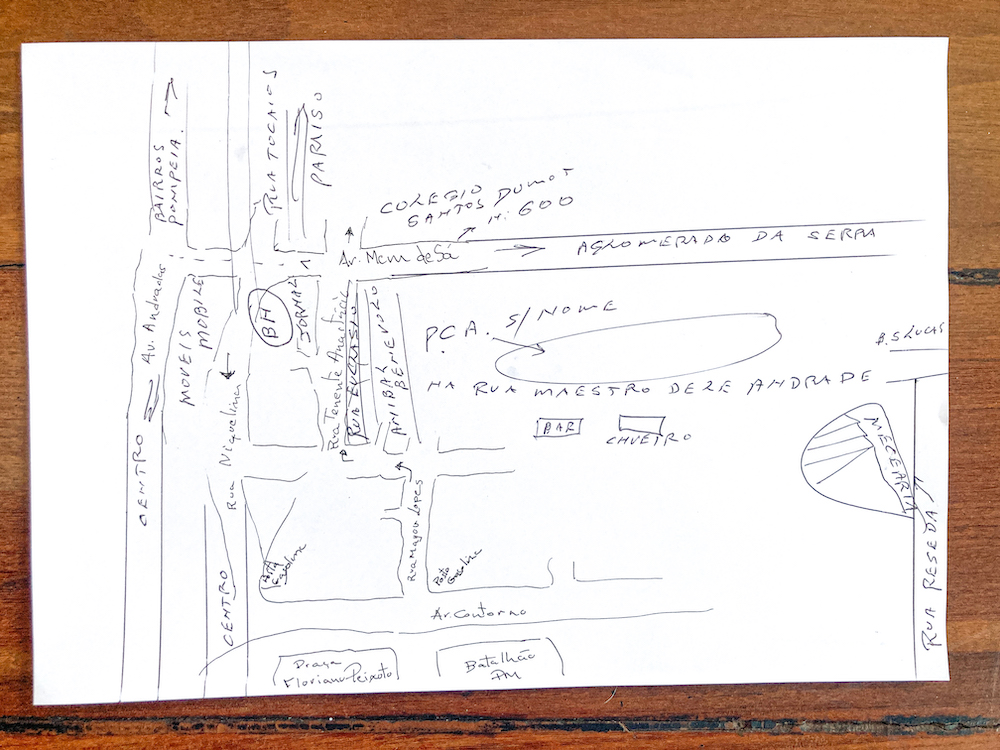 BAIRROS
POMPEIA.
RUA TOCAIOS
PARAISO
COLEGIO
SANTOS DUMOT
N: 600
Av. Mem de Sá
AGLOMERADO DA SERRA
Av. Andradas
CENTRO
MOVEIS
MOBILE
BH
JORNAL
Rua Niquelina
CENTRO
Rua Tenente Anastácio
RUA EUCLASIO
ANIBAL
BENEVOLO
PCA. S/NOME
NA RUA MAESTRO DELE ANDRADE
BAR
CHVEIRO
B. S LUCAS
MECEARIA
RUA RESEDÁ
Rua Magou Lopes
Posto
Gasolina
Posto
Gasolina
Av. Contorno
Praça
Floriano Peixoto
Batalhão
PM